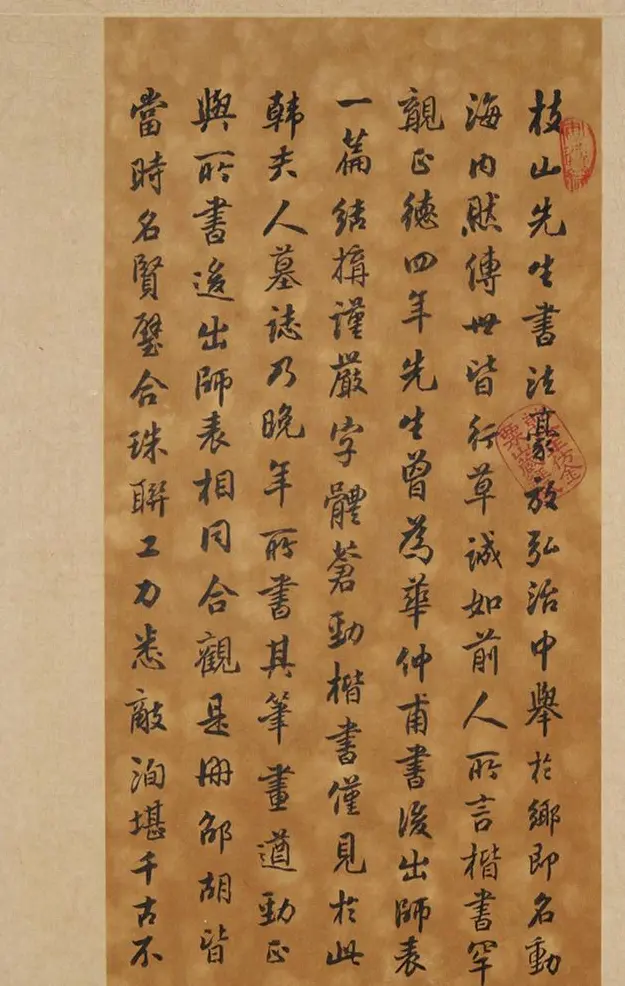 枝山先生書法豪放弘治中舉於鄉即名動
海內然傳世皆行草誠如前人所言楷書罕
覯正德四年先生曾為華仲甫書後出師表
一篇結搆謹嚴字體蒼勁楷書僅見於此
韓夫人墓誌乃晚年所書其筆畫遒勁正
與所書後出師表相同合觀是冊邵胡皆
當時名賢璧合珠聯工力悉敵洵堪千古不